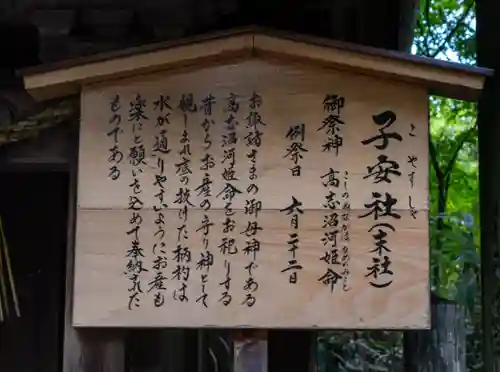 子安社(末社)
こやすしゃ
御祭神 高志沼河姫命
こしのぬなかはひめのみこと
例祭日 六月二十二日
お諏訪さまの御母神である
高志沼河姫命をお祀りする
昔からお産の守り神として
親しまれ底の抜けた柄杓は
水が通りやすいようにお産も
楽にと願いを込めて奉納した
ものである